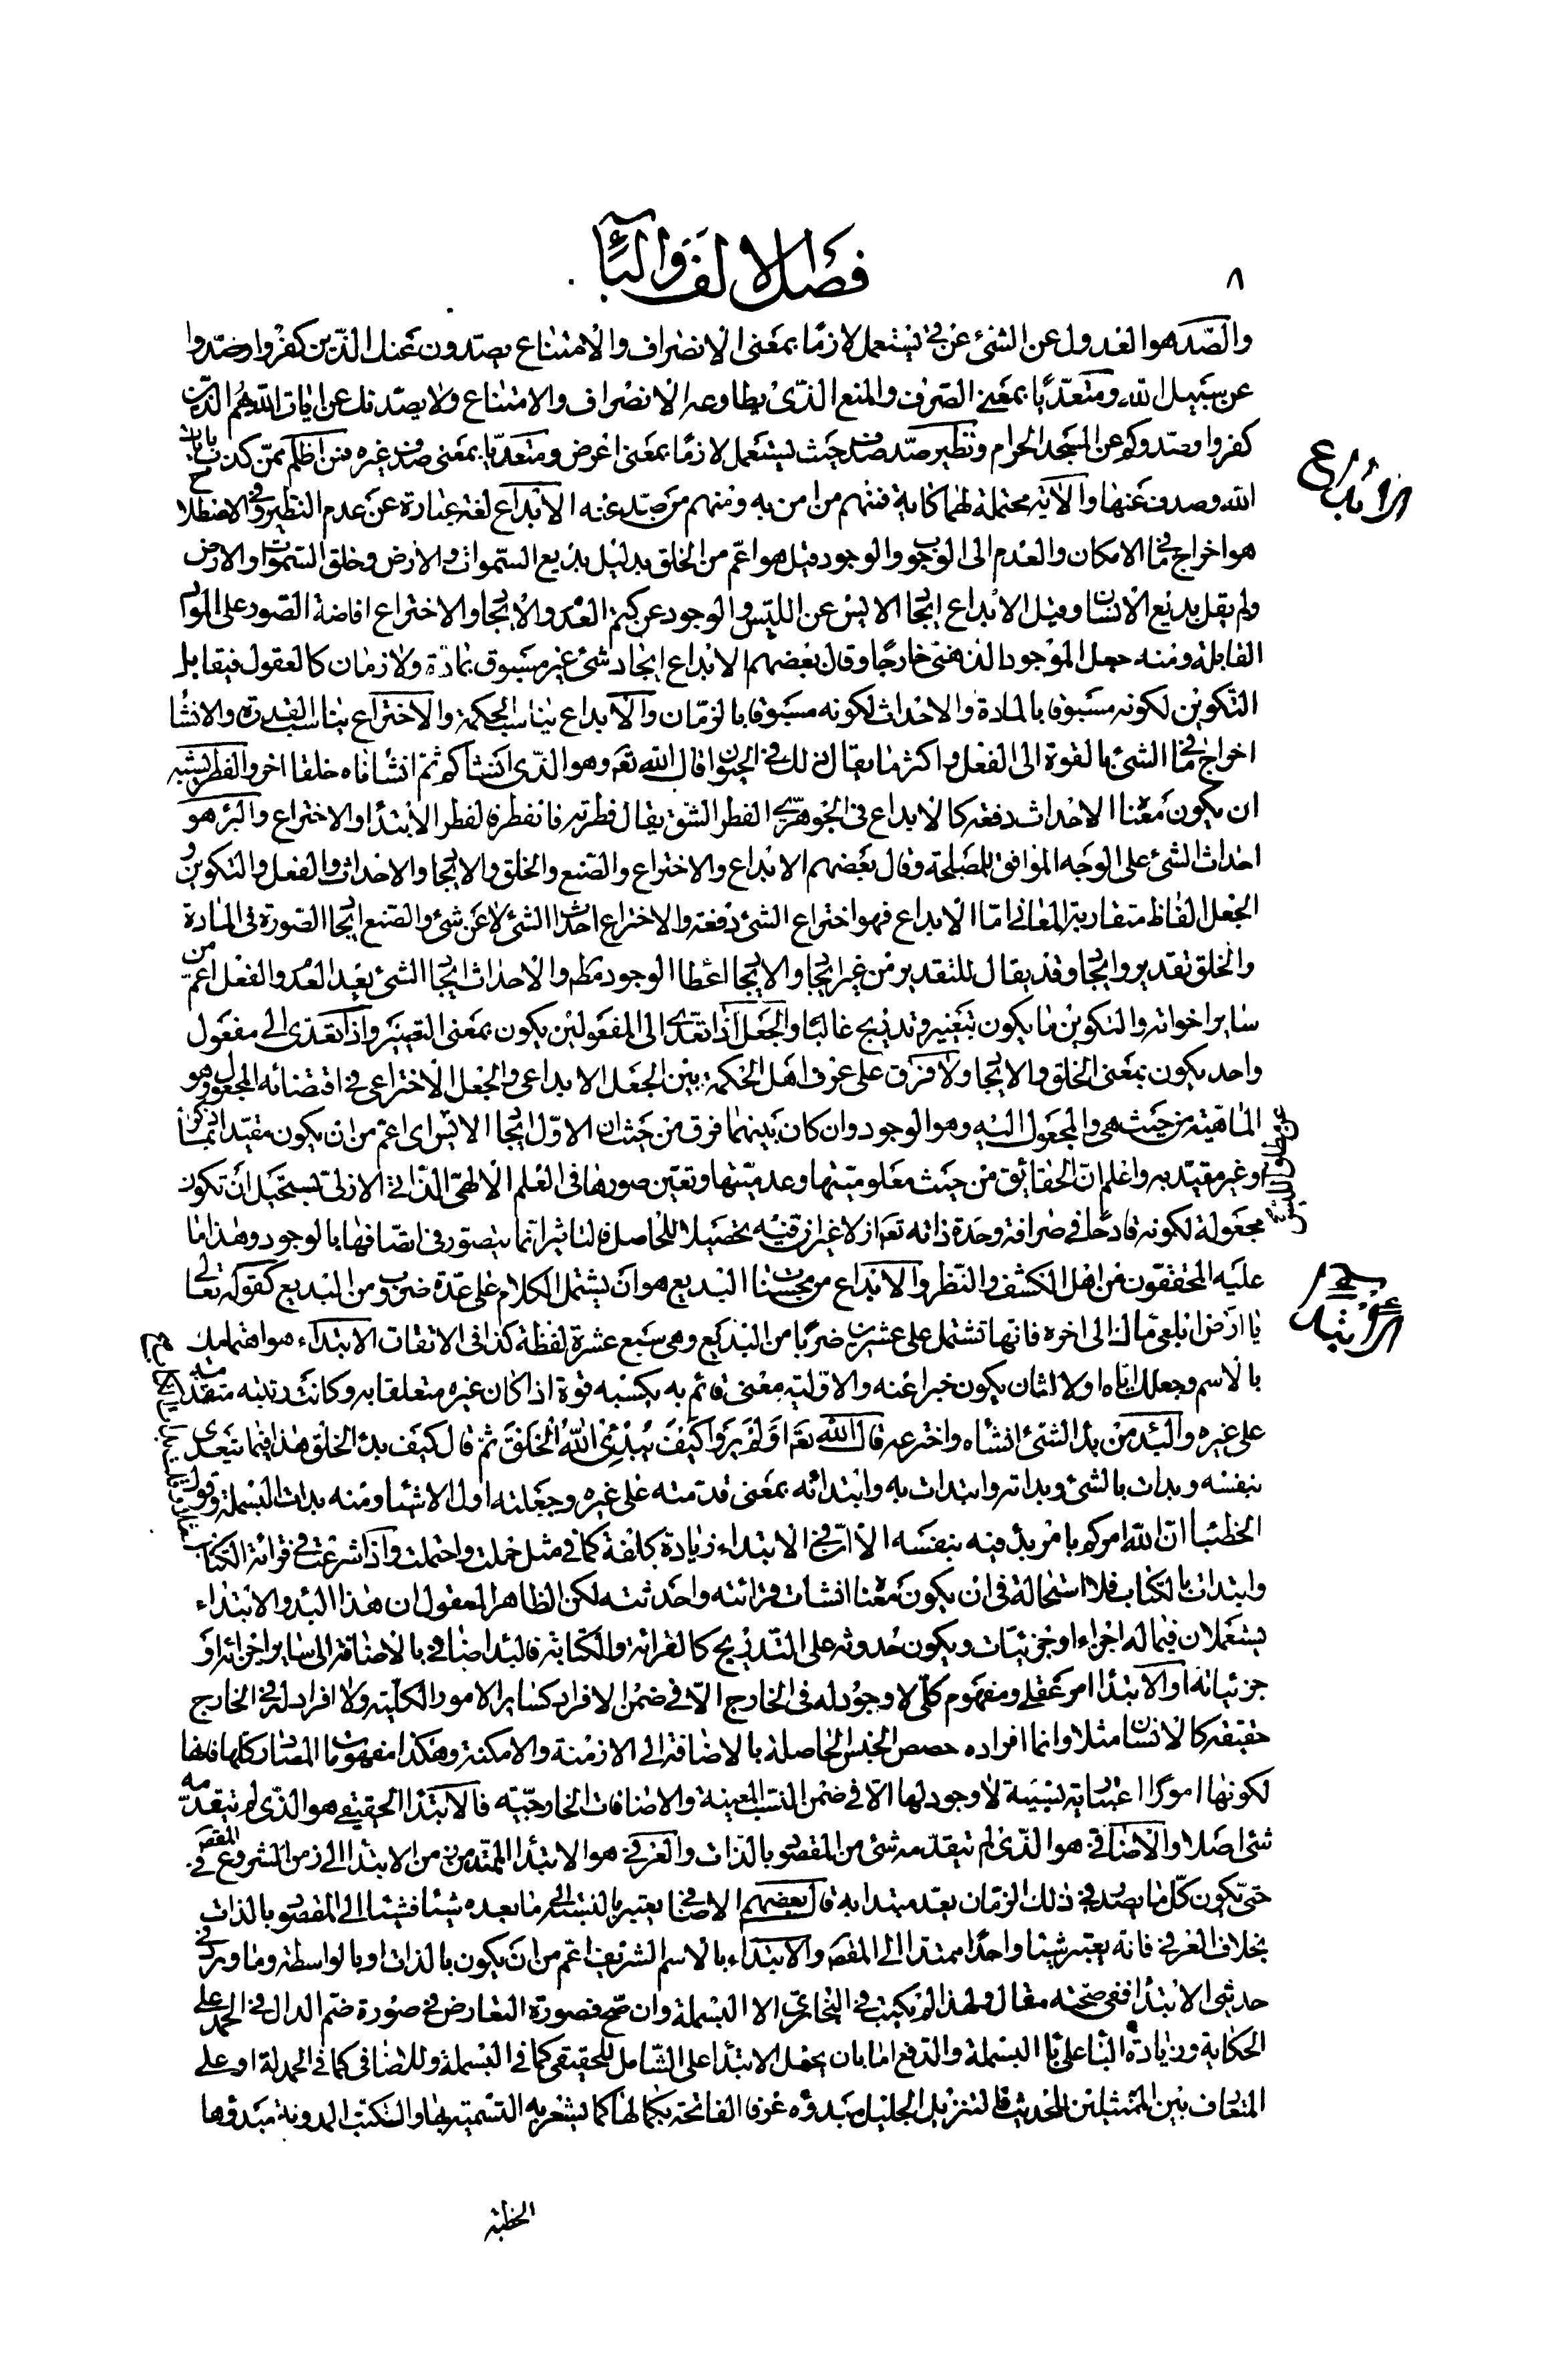 ٨
فصل الالف والبا
والصّد هو العدول عن الشئ عن قلى يستعمل لازمًا بمعنى الانصراف والامتناع يصدون عنك الذين كفروا وصدوا
عن سبيل الله ومتعدّيًا بمعنى الصرف والمنع الذى يطاوعه الانصراف والامتناع ولا يصدنك عن ايات الله هم الذين
كفروا وصدوكم عن المسجد الحرام ونظير صدّ صدف حيث يستعمل لازمًا بمعنى اعرض ومتعديا بمعنى صدف غيره فمن اظلم ممّن كذب بايات
الله وصدف عنها والآية محتملة لهما كاية فمنهم من امن به ومنهم من صدّ عنه الابداع لغة عبارة عن عدم النظير وفى الاصطلاح
هو اخراج ما فى الامكان والعدم الى الوجوب والوجود قيل هو اعم من الخلق بدليل بديع السموات والارض وخلق السموات والارض
ولم يقل بديع الانسان وقيل الابداع ايجاد الايس عن الليس والوجود عن كتم العدم والايجاد والاختراع افاضة الصور على المواد
القابلة ومنه جعل الموجود الذهنى خارجا وقال بعضهم الابداع ايجاد شئ غير مسبوق بمادة ولا زمان كالعقول فيقابل
التكوين لكونه مسبوقا بالمادة والاحداث لكونه مسبوقا بالزمان والابداع يناسب الحكمة والاختراع يناسب القدرة والانشاء
اخراج ما فى الشئ بالقوة الى الفعل واكثر ما يقال ذلك فى الحيوان قال الله تعه وهو الذى انشاكم ثم انشاناه خلقا اخر والفطر يشبه
ان يكون معناه الاحداث دفعة كالابداع فى الجوهرى الفطر الشق يقال فطرته فانفطر والفطر الابتداء والاختراع والبرء هو
احداث الشئ على الوجه الموافق للمصلحة وقال بعضهم الابداع والاختراع والصنع والخلق والايجاد والاحداث والفعل والتكوين و
الجعل الفاظ متقاربة المعانى امّا الابداع فهو اختراع الشئ دفعة والاختراع احداث الشئ لا عن شئ والصنع ايجاد الصورة فى المادة
والخلق تقدير وايجاد وقد يقال للتقدير من غير ايجاد والايجاد اعطاء الوجود مطم والاحداث ايجاد الشئ بعد العدم والفعل اعم من
ساير اخواته والتكوين ما يكون بتغيير وتدريج غالبا والجعل اذا تعدى الى المفعولين يكون بمعنى التصيير واذا تعدى الى مفعول
واحد يكون بمعنى الخلق والايجاد ولا فرق على عرف اهل الحكمة بين الجعل الابداعى والجعل الاختراعى فى اقتضائه المجعول وهو
الماهية من حيث هى والمجعول اليه وهو الوجود وان كان بينهما فرق من حيث ان الاول ايجاد الايس اى اعم من ان يكون مقيدا بما ذكر
او غير مقيد به واعلم ان الحقايق من حيث معلوميتها وعدميتها وتعين صورها فى العلم الالهى الذاتى الازلى يستحيل ان تكون
مجعولة لكونه قادحا فى صرافة وحدة ذاته تعه ازلا غير ان فيه تحصيلا للحاصل فالتاثير انما يتصور فى اتصافها بالوجود وهذا ما
عليه المحققون من اهل الكشف والنظر والابداع من محسنات البديع هو ان يشتمل الكلام على عدة ضروب من البديع كقوله تعالى
يا ارض ابلعى مائك الى اخره فانها تشتمل على عشرين ضربا من البديع وهى سبع عشرة لفظة كذا فى الاتقان الابتداء هو اهتمامك
بالاسم وجعلك اياه اولا لثان يكون خبرا عنه والاولية معنى قائم به يكسبه قوة اذا كان غيره متعلقا به وكانت رتبته متقدمة
على غيره والبدء من بدا الشئ انشاه واخترعه قال الله تعه اولم يروا كيف يبدئ الله الخلق ثم قال كيف بدا الخلق هذا فيما يتعدى
بنفسه وبدات بالشئ وبداته وابتدات به وابتداته بمعنى قدمته على غيره وجعلته اول الاشياء ومنه بدات البسملة وقول
الخطباء ان الله امركم بامر بدأ فيه بنفسه الا ان فى الابتداء زيادة كلفة كما فى مثل حملت واحتملت واذا شرعت فى قرائة الكتاب
وابتدات بالكتاب فلا استحالة فى ان يكون معناه انشات قرائته واحدثته لكن الظاهر المعقول ان هذا البدء والابتداء
يستعملان فيما له اجزاء او جزئيات ويكون حدوثه على التدريج كالقرائة والكتابة فالبدء اضافى بالاضافة الى ساير اجزائه او
جزئياته او الابتداء امر عقلى ومفهوم كلى لا وجود له فى الخارج الا فى ضمن الافراد كساير الامور الكلية ولا افراد له فى الخارج
حقيقة كالانسان مثلا وانما افراده حصص الجنس الحاصلة بالاضافة الى الازمنة والامكنة وهكذا مفهومات المصادر كلها فانها
لكونها امورا اعتبارية نسبية لا وجود لها الا فى ضمن النسب المعينة والاضافات الخارجية فالابتداء الحقيقى هو الذى لم يتقدمه
شئ اصلا والاضافى هو الذى لم يتقدمه شئ من المقصود بالذات والعرفى هو الابتداء الممتد من زمن الابتداء الى زمن الشروع فى المقص
حتى يكون كل ما يصدر فى ذلك الزمان يعد مبتدا به قال بعضهم الاضافى يعتبر بالنسبة الى ما بعده شيئا فشيئا الى المقصود بالذات
بخلاف العرفى فانه يعتبر شيئا واحدا ممتدا الى المقص والابتداء بالاسم الشريف اعم من ان يكون بالذات او بالواسطة وما ورد فى
حديثى الابتداء ففى صحته مقال ولهذا لم يكتب فى البخارى الا البسملة وان صح فصورة التعارض فى صورة ضم الدال فى الحمد على
الحكاية وزيادة الباء على باء البسملة والدفع اما بان يحمل الابتداء على الشامل للحقيقى كما فى البسملة وللاضافى كما فى الحمدلة او على
المتعارف بين الممتثلين للحديث فالتنزيل الجليل مبدؤه عرفا الفاتحة بكمالها كما يشعر به التسمية بها والكتب المدونة مبدؤها
الخطبة
الابداع
الابتداء
عن مطلق الليس